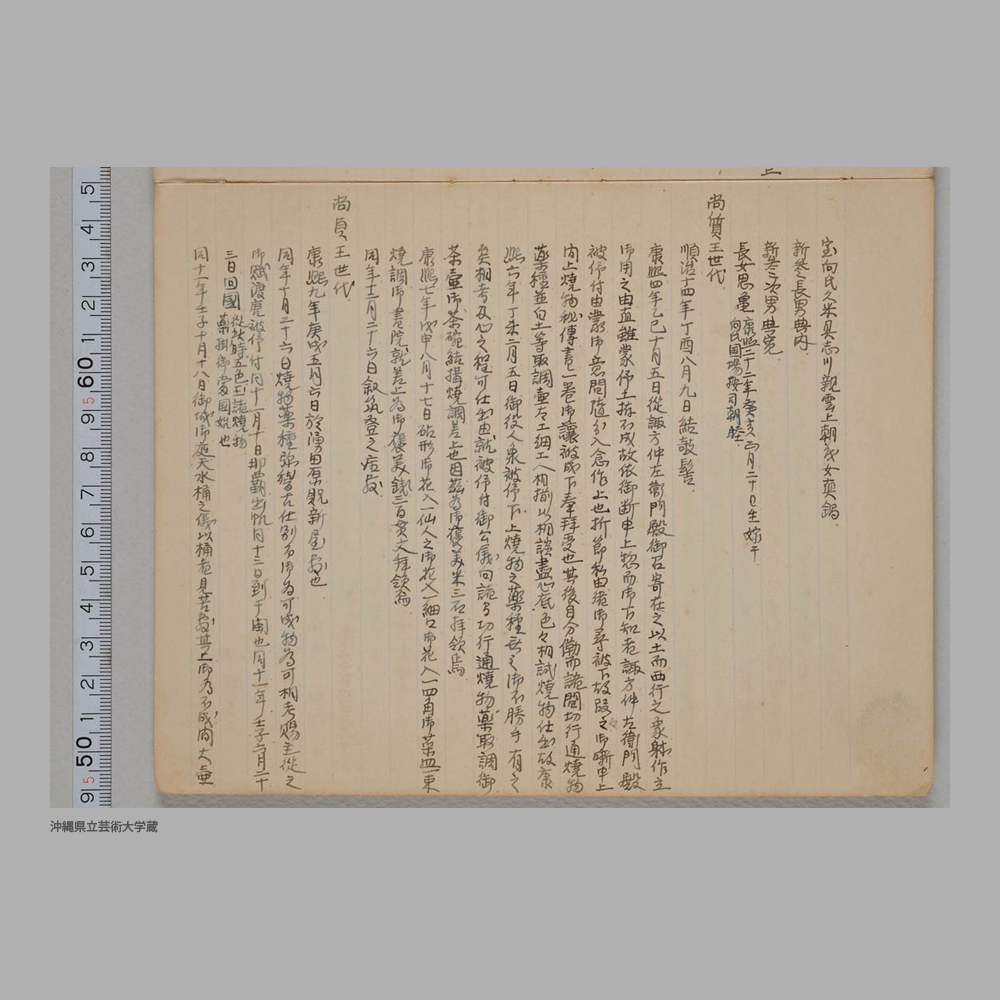 室向氏久米具志川親雲上朝成女真鍋
新参長男典内
新参次男典寛
長女思亀 康熙二十二年癸亥正月二十日生嫁于
向氏國場按司朝陸
尚質王世代
順治十四年丁酉八月九日結敧髻
康熙四年乙巳十月五日從諏方仲左衛門殿御召寄在之以土而西行之象躰作立
御用之由直雖蒙侟土拵不成故依御断申上惣而御下知老諏方仲左衛門殿
被侟付由蒙御意問随分入念作上也折節私由緒御尋被下故段之御噺申上
内上焼物秘傳書一巻御譲被成下奉拝受也其後自分働而詭間切行通焼物
薬種並白土等取調壷大工細工人相揃以相談盡心底色々相試焼物仕出故康
熙六年丁未二月五日御役人衆被侟下上焼物之薬種無之御不勝手有之
矣相考及心之程可仕出由就被侟付御公儀向詭間切行通焼物薬取調御
茶壷御茶碗結構焼調差上也因茲為御褒美米三石拝領焉
康熙七年戊申八月十七日砧形御花入一仙人之御花入一細口御花入一四角御菜皿一束
焼調御書院就差上為御褒美銭三百貫文拝領焉
同年十二月二十六日叙筑登之座敷
尚貞王世代
康熙九年庚戌五月六日於湧田原賜新屋敷也
同年十月二十六日焼物薬種弥稽古仕別而御為可成物為可相考賜主從之
御賦渡唐被侟付同十一月十日那覇出帆同十三日到于閩也同十一年壬子六月二十
三日回國 從此時五色玉諸焼物
薬掛御當國始也
同十一年壬子十月十八日御城御庭天水桶之儀以桶老見苦敷其上御為不成間大壷
沖縄県立芸術大学蔵